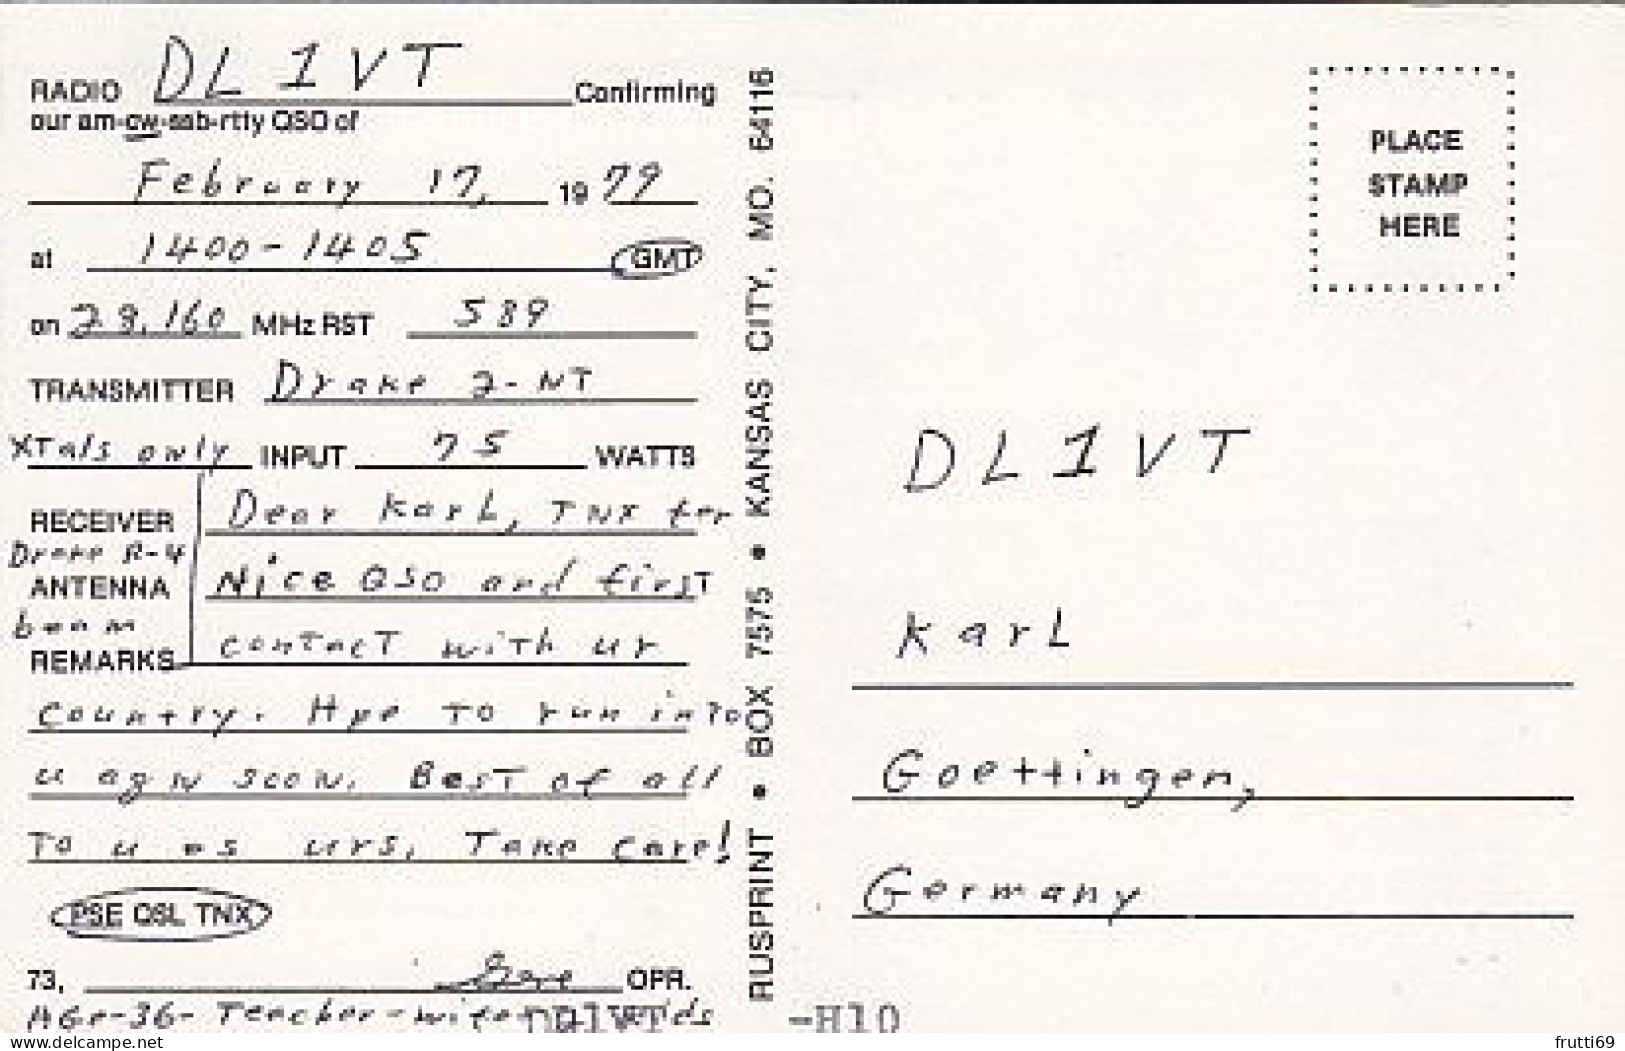 RADIO DL1VT Confirming
our am-cw-ssb-rtty QSO of
February 17, 1979
at 1400-1405 GMT
on 28.160 MHz RST 589
TRANSMITTER Drake 2-NT
XTals only INPUT 75 WATTS
RECEIVER Dear Karl, TNX for
Drake R-4
ANTENNA Nice QSO and first
beam
REMARKS contact with ur
country. Hpe to run into
u agn soon. Best of all
To u es urs. Take care!
PSE QSL TNX
73, OPR.
Age-36- Teacher-wife
DL1VT -H10
RUSPRINT • BOX 7575 • KANSAS CITY, MO. 64116
PLACE
STAMP
HERE
DL1VT
Karl
Goettingen,
Germany
www.delcampe.net
frutti69